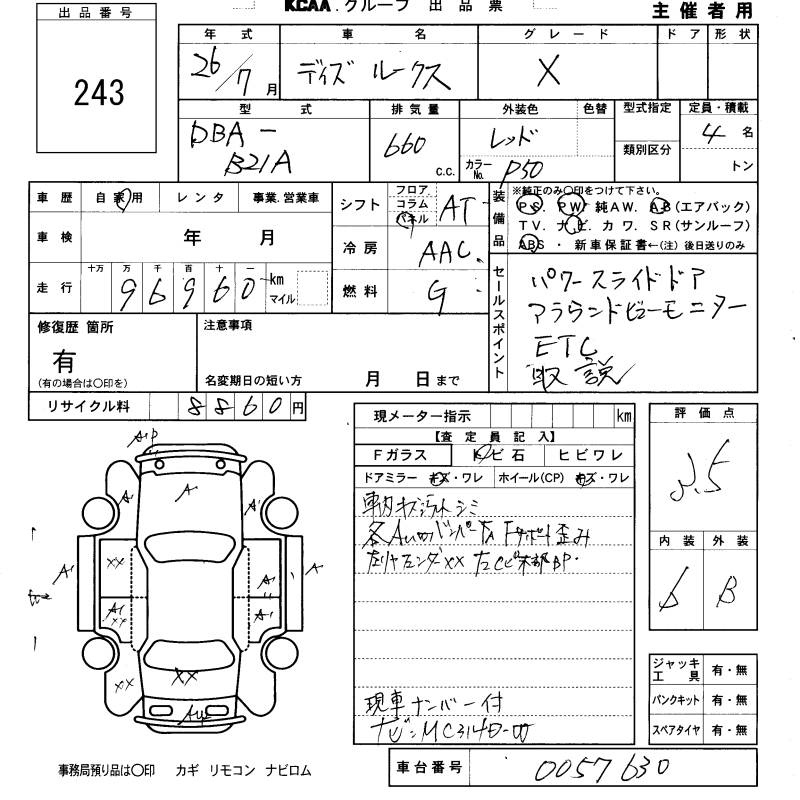 KCAA.グループ 出品票
主催者用
出品番号
243
年式
26/7月
車名
デイズ ルークス
グレード
X
ドア
形状
型式
DBA-
B21A
排気量
660
c.c.
外装色
レッド
色替
カラーNo.
P50
型式指定
類別区分
定員・積載
4名
トン
車歴
自家用
レンタ
事業.営業車
車検
年 月
走行
十万 万 千 百 十 一
96960
km
マイル
シフト
フロア
コラム
パネル
AT
冷房
AAC
燃料
G
装備品
※純正のみ〇印をつけて下さい。
PS. PW. 純AW. AB(エアバック)
TV. ナビ. カワ. SR(サンルーフ)
ABS ・ 新車保証書←(注)後日送りのみ
セールスポイント
パワースライドドア
アラウンドビューモニター
ETC
取説
修復歴 箇所
有
(有の場合は〇印を)
注意事項
名変期日の短い方 月 日まで
リサイクル料
8860円
現メーター指示
km
【査定員記入】
Fガラス
トビ石
ヒビワレ
ドアミラー キズ・ワレ
ホイール(CP) キズ・ワレ
車内キズ汚れシミ
歪み
XX
現車ナンバー付
ナビ:MC314D-W
評価点
3.5
内装
外装
B
ジャッキ工具 有・無
パンクキット 有・無
スペアタイヤ 有・無
A1P
A
A1
A1
XX
A1
A1
A
A1
XX
A1
XX
XX
事務局預り品は〇印 カギ リモコン ナビロム
車台番号
0057630